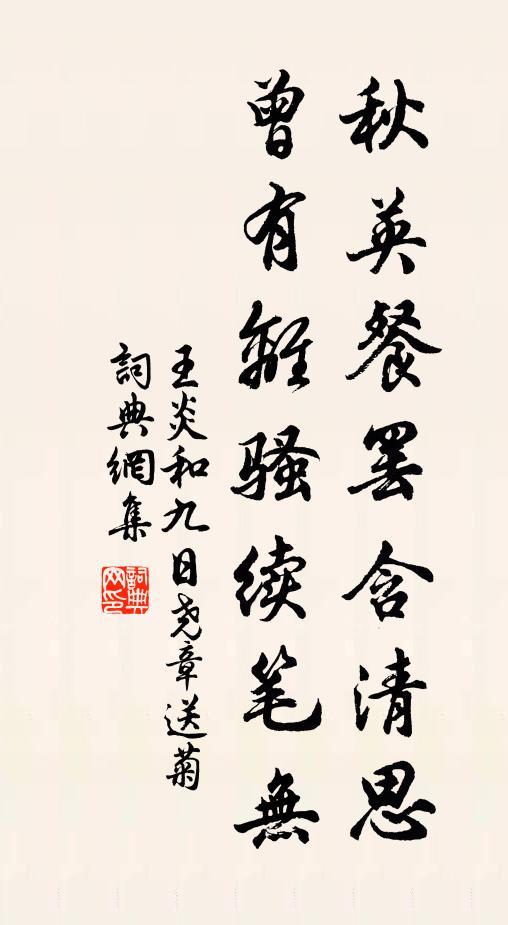 秋英餐罢含清思
曾有離骚续笔無
王炎和九日尧章送菊
詞典網集
詞典网印